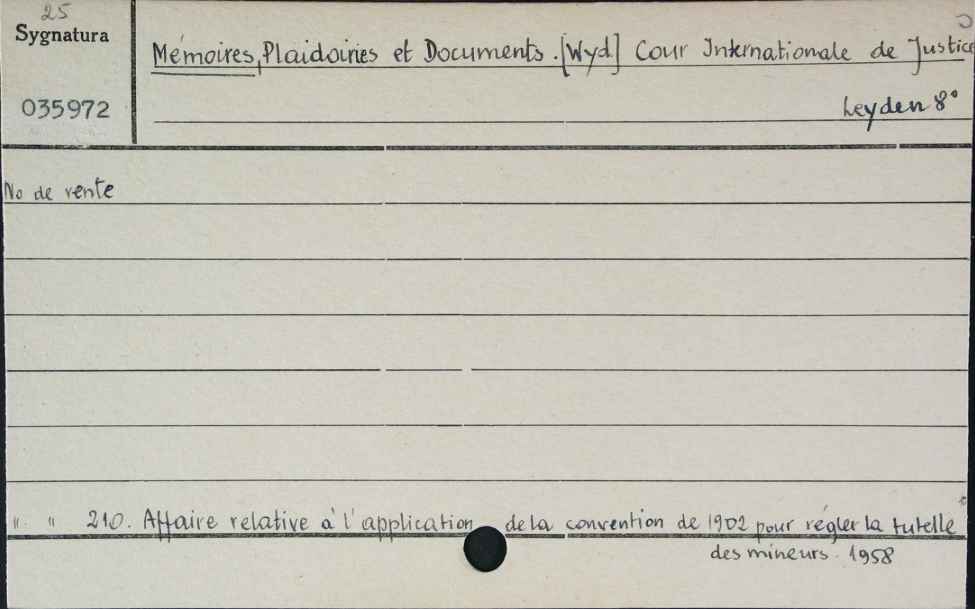 25
Sygnatura
Mémoires, Plaidoiries et Documents. [Wyd] Cour Internationale de Justice
035972
Leyden 8°
No de vente
" " 210. Affaire relative à l'application de la convention de 1902 pour régler la tutelle
des mineurs. 1958